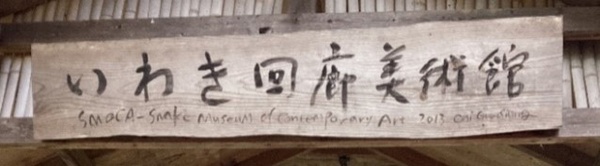 いわき回廊美術館
SMoCA-Snake Museum of Contemporary Art 2013